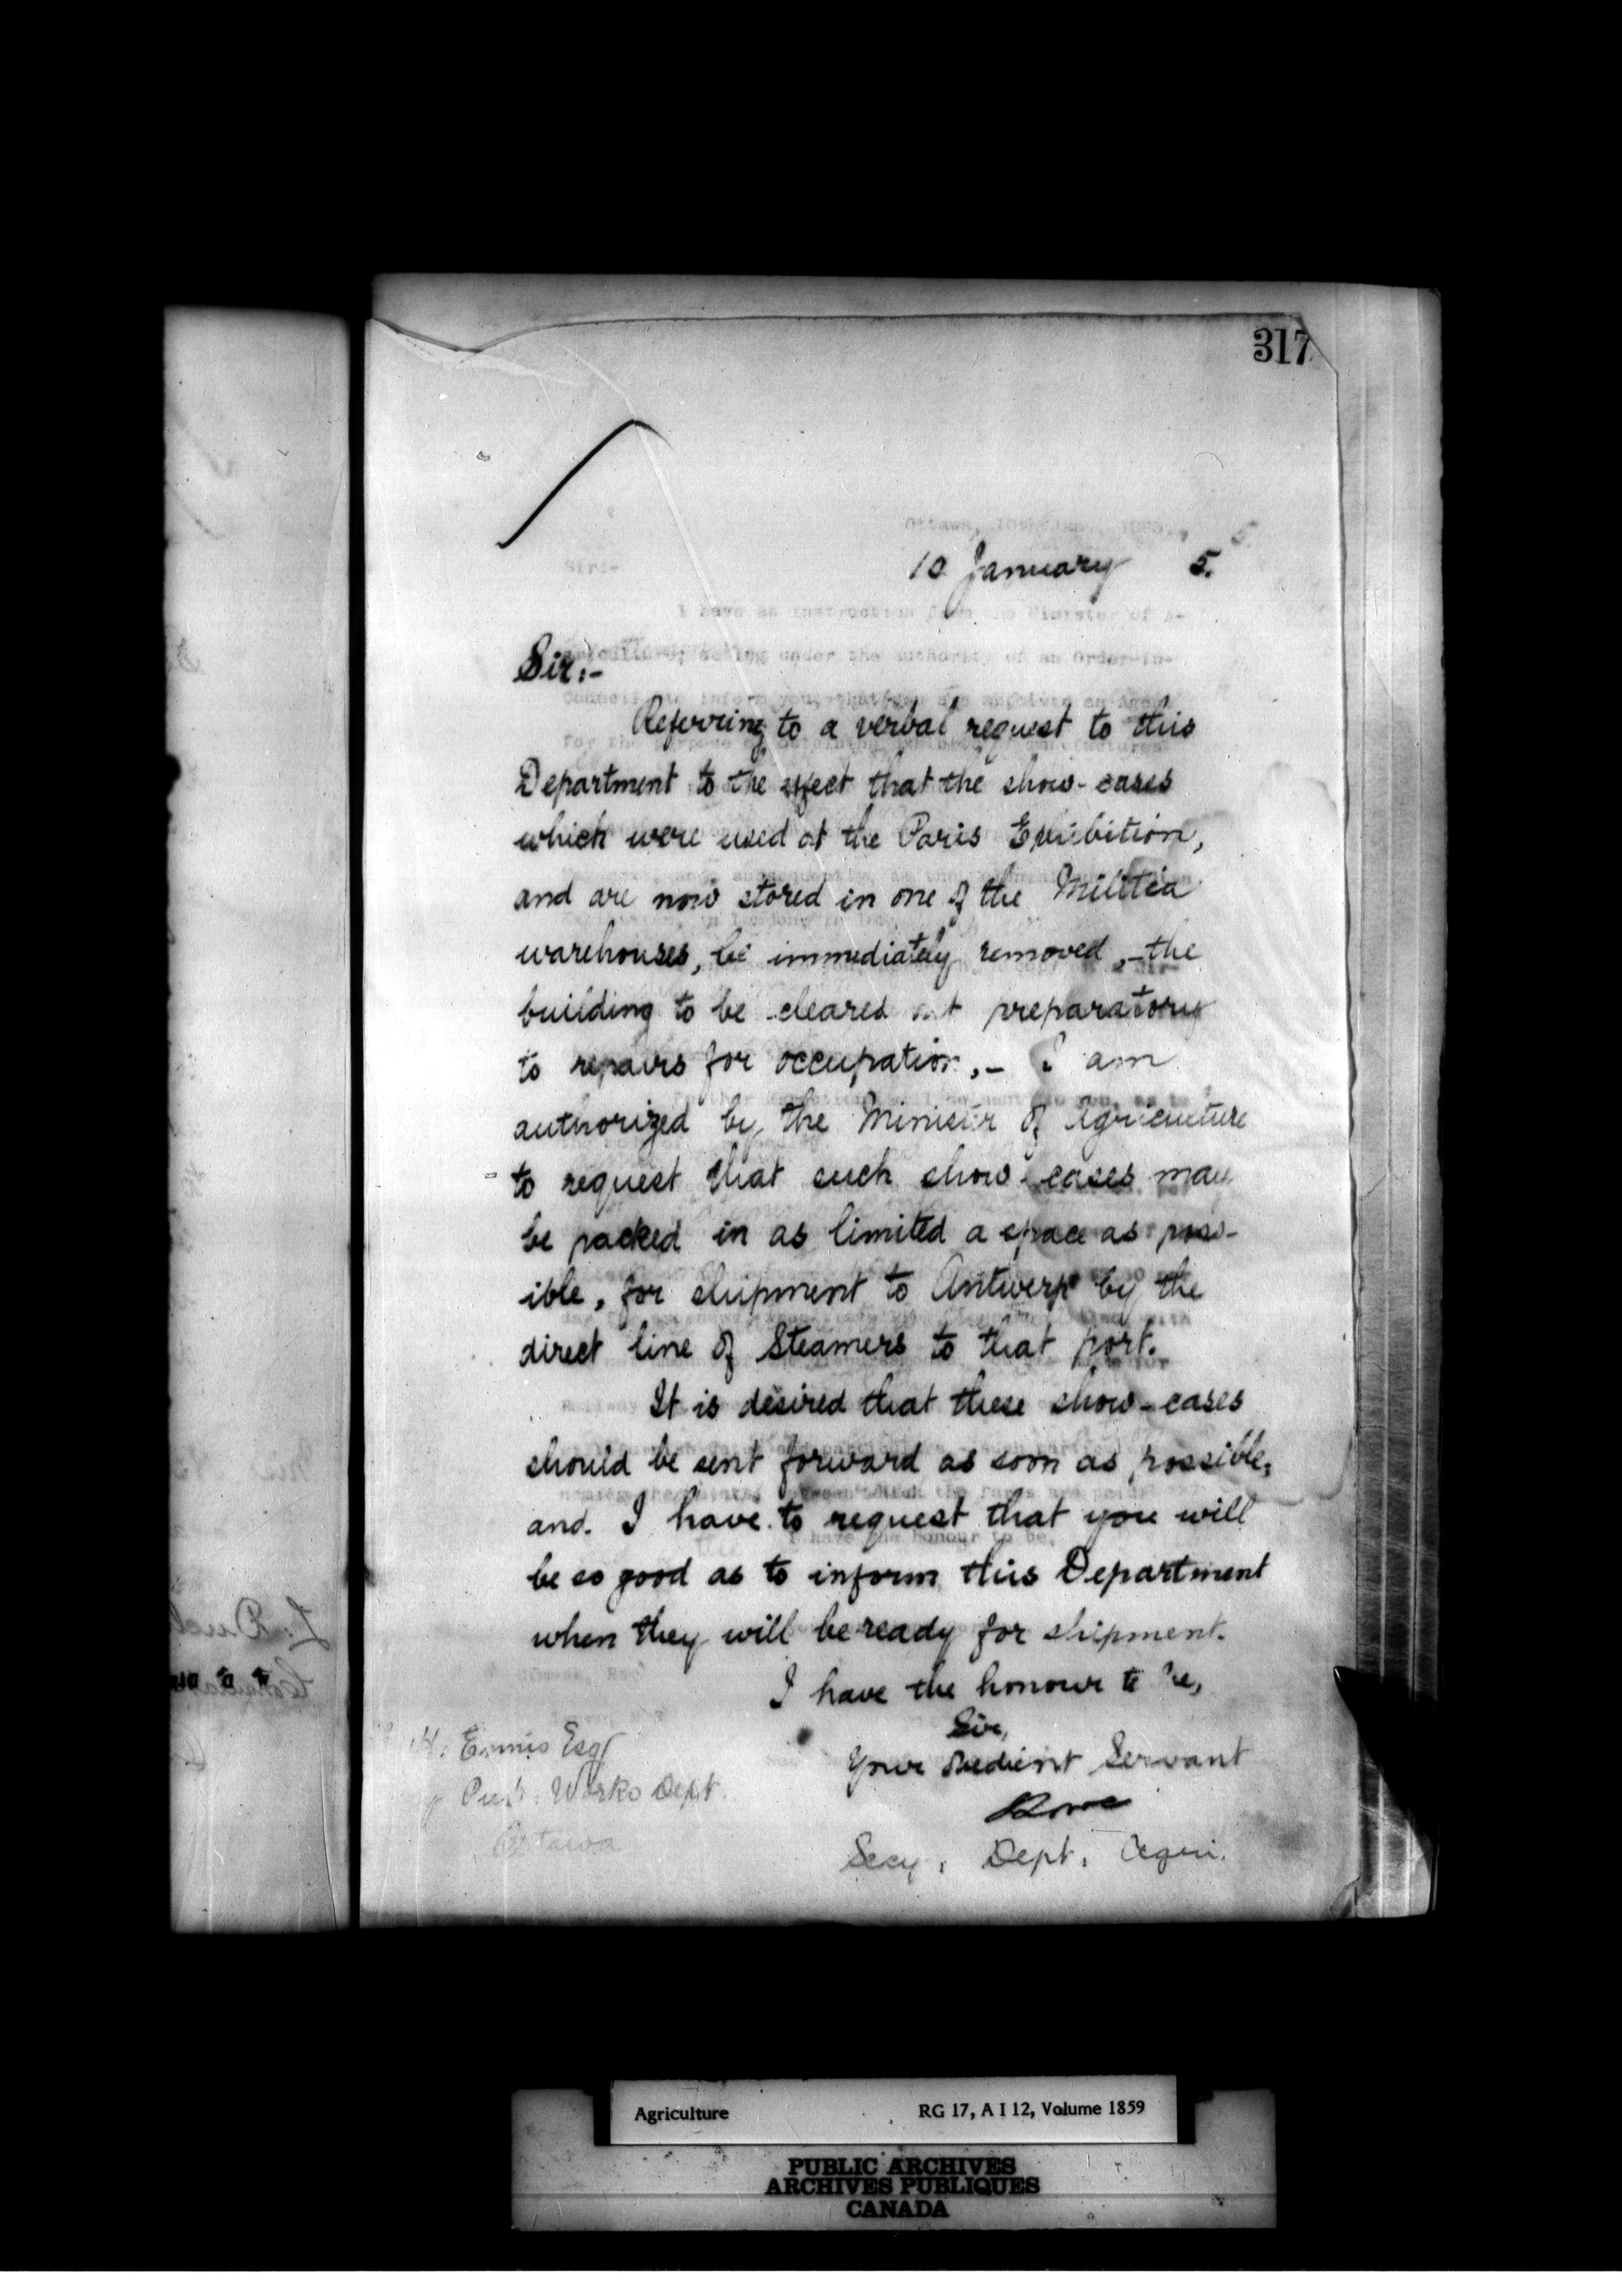 317
10 January 5.
Sir:-
Referring to a verbal request to this
Department to the effect that the show-cases
which were used at the Paris Exhibition,
and are now stored in one of the Militia
warehouses, be immediately removed,- the
building to be cleared out preparatory
to repairs for occupation,- I am
authorized by the Minister of Agriculture
to request that such show-cases may
be packed in as limited a space as poss-
ible, for shipment to Antwerp by the
direct line of Steamers to that port.
It is desired that these show-cases
should be sent forward as soon as possible,
and I have to request that you will
be so good as to inform this Department
when they will be ready for shipment.
I have the honour to be,
Sir,
Your Obedient Servant
Secy, Dept, Agri.
H. Ennis Esq
Pub. Works Dept.
Ottawa
Agriculture RG 17, A I 12, Volume 1859
PUBLIC ARCHIVES
ARCHIVES PUBLIQUES
CANADA